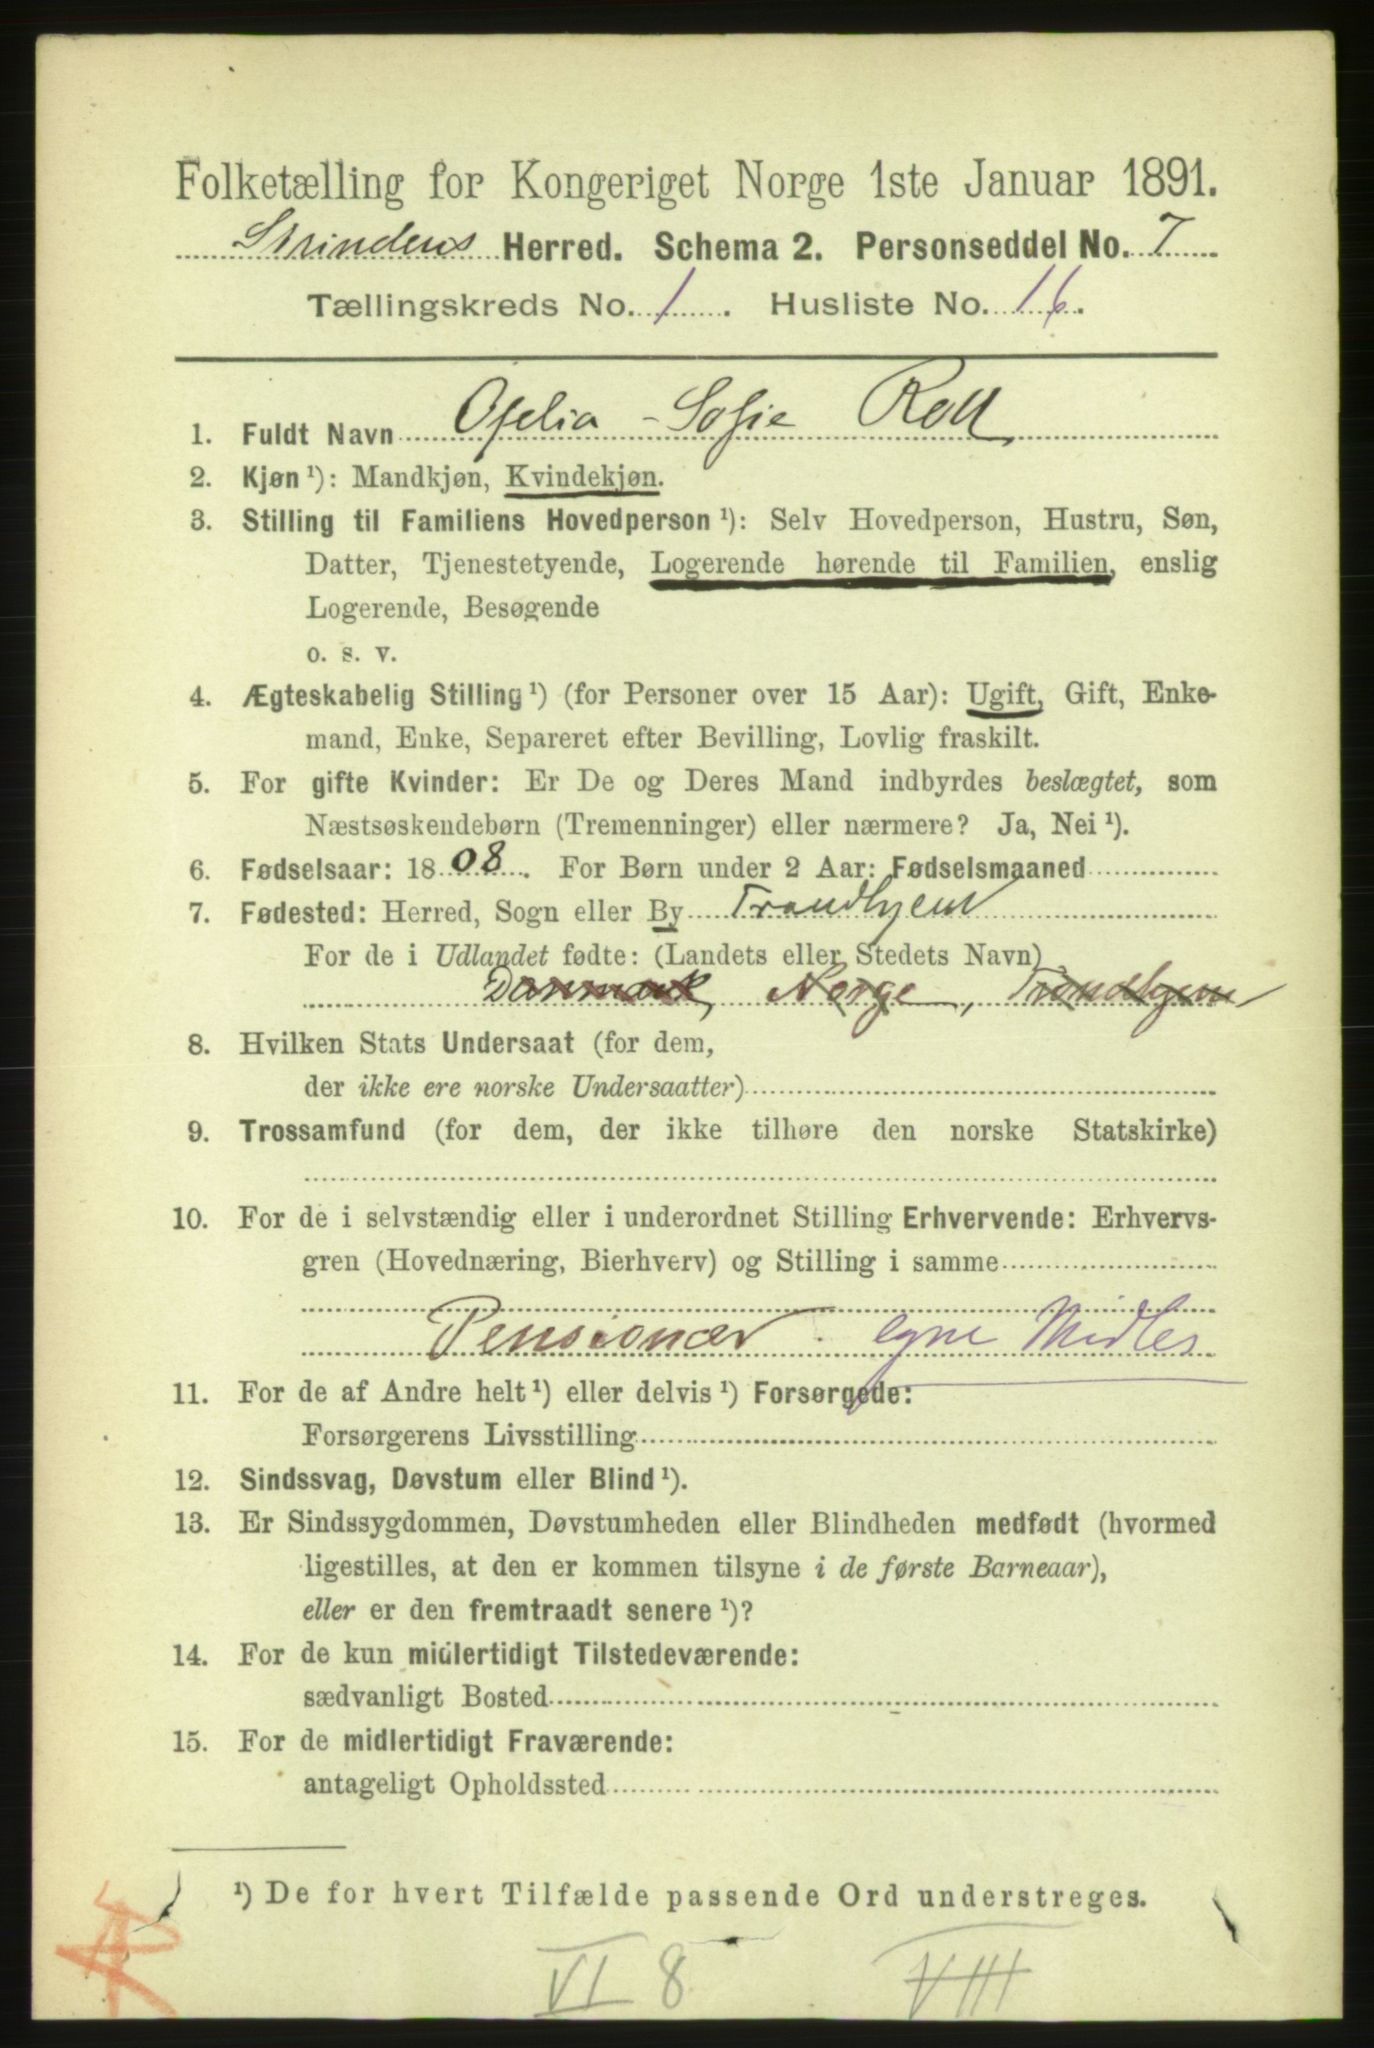 Folketælling for Kongeriget Norge 1ste Januar 1891.
Strindens Herred. Schema 2. Personseddel No. 7
Tællingskreds No. 1. Husliste No. 16.
1. Fuldt Navn Ofelia Sofie Roll
2. Kjøn ¹): Mandkjøn, Kvindekjøn.
3. Stilling til Familiens Hovedperson ¹): Selv Hovedperson, Hustru, Søn,
Datter, Tjenestetyende, Logerende hørende til Familien, enslig
Logerende, Besøgende
o. s. v.
4. Ægteskabelig Stilling ¹) (for Personer over 15 Aar): Ugift, Gift, Enke-
mand, Enke, Separeret efter Bevilling, Lovlig fraskilt.
5. For gifte Kvinder: Er De og Deres Mand indbyrdes beslægtet, som
Næstsøskendebørn (Tremenninger) eller nærmere? Ja, Nei ¹).
6. Fødselsaar: 1808. For Børn under 2 Aar: Fødselsmaaned
7. Fødested: Herred, Sogn eller By Trondhjem
For de i Udlandet fødte: (Landets eller Stedets Navn)
Danmark, Norge, Trondhjem
8. Hvilken Stats Undersaat (for dem,
der ikke ere norske Undersaatter)
9. Trossamfund (for dem, der ikke tilhøre den norske Statskirke)
10. For de i selvstændig eller i underordnet Stilling Erhvervende: Erhvervs-
gren (Hovednæring, Bierhverv) og Stilling i samme
Pensionær. egne Midler
11. For de af Andre helt ¹) eller delvis ¹) Forsørgede:
Forsørgerens Livsstilling
12. Sindssvag, Døvstum eller Blind ¹).
13. Er Sindssygdommen, Døvstumheden eller Blindheden medfødt (hvormed
ligestilles, at den er kommen tilsyne i de første Barneaar),
eller er den fremtraadt senere ¹)?
14. For de kun midlertidigt Tilstedeværende:
sædvanligt Bosted
15. For de midlertidigt Fraværende:
antageligt Opholdssted
¹) De for hvert Tilfælde passende Ord understreges.
VI 8 VIII